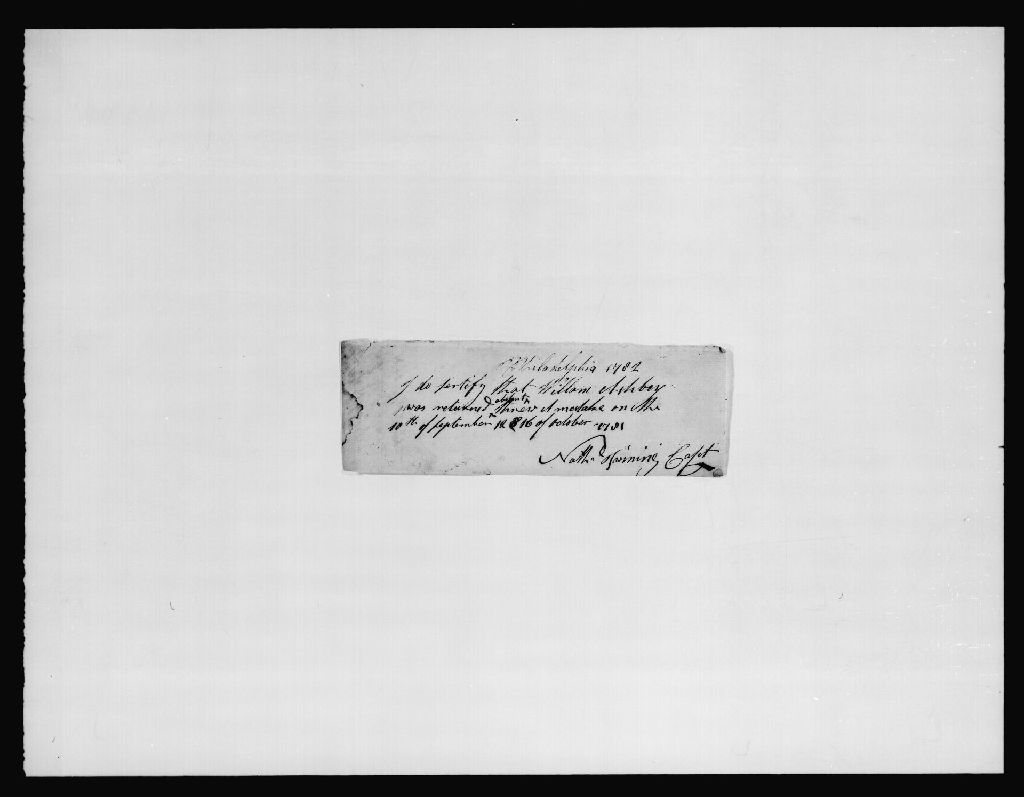 Philadelphia 1782
I do sertify that Willom Ashbox
was returned absent threw A mestake on the
10th of september & 16 of october 1781
Capt